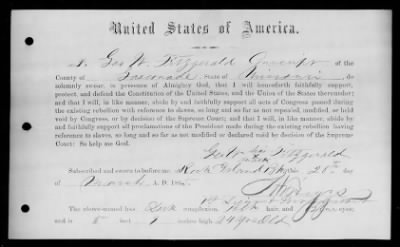 United States of America.
I, Geo W. Fitzgerald of the
County of Gasconade, State of Missouri, do
solemnly swear, in presence of Almighty God, that I will henceforth faithfully support,
protect, and defend the Constitution of the United States, and the Union of the States thereunder;
and that I will, in like manner, abide by and faithfully support all acts of Congress passed during
the existing rebellion with reference to slaves, so long and so far as not repealed, modified, or held
void by Congress, or by decision of the Supreme Court; and that I will, in like manner, abide by
and faithfully support all proclamations of the President made during the existing rebellion having
reference to slaves, so long and so far as not modified or declared void by decision of the Supreme
Court: So help me God.
Geo W Fitzgerald
Subscribed and sworn to before me at Rock Island Bks, Ills, 28th day
of March A. D. 186
The above-named has Dark complexion, hair, and eyes;
and is 5 feet inches high 24 yrs old